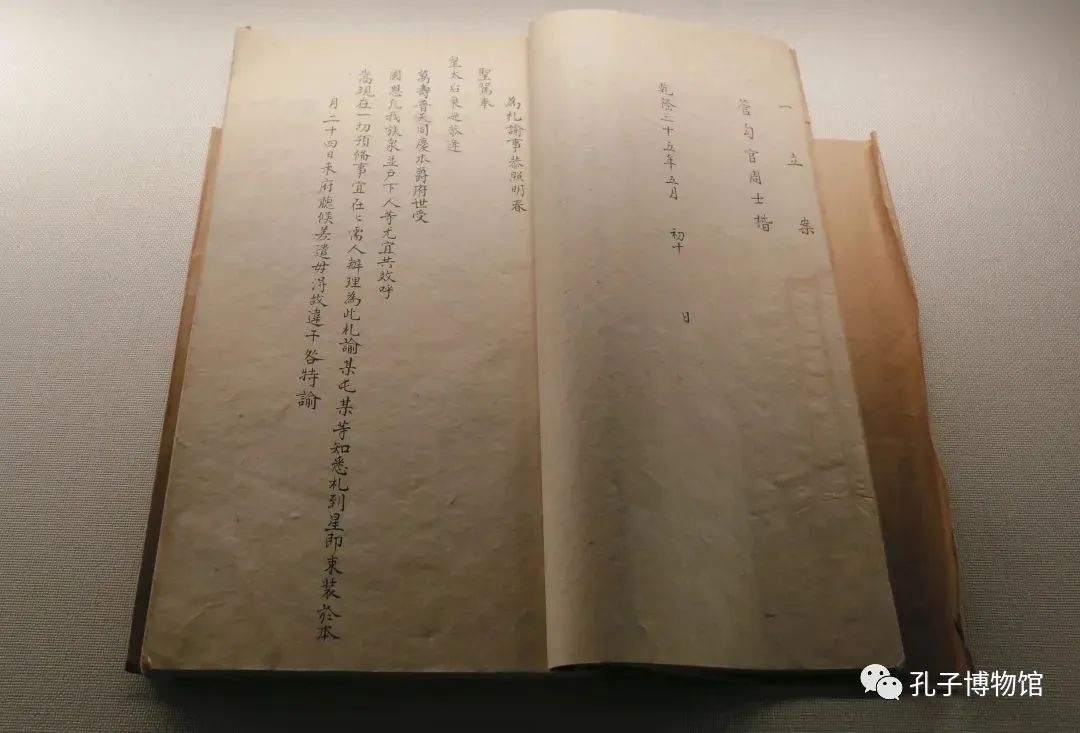 一立案
管勾官周士楷
乾隆二十五年五月 初十 日
為札諭事恭照明春
聖駕奉
皇太后東巡恭逢
萬壽普天同慶本爵府世受
國恩凡我族衆並戶下人等尤宜共效呼
嵩現在一切預備事宜在々需人辦理為此札諭某屯某等知悉札到星即束裝於本
月二十四日来府聽候差遣毋得故違干咎特諭
孔子博物馆